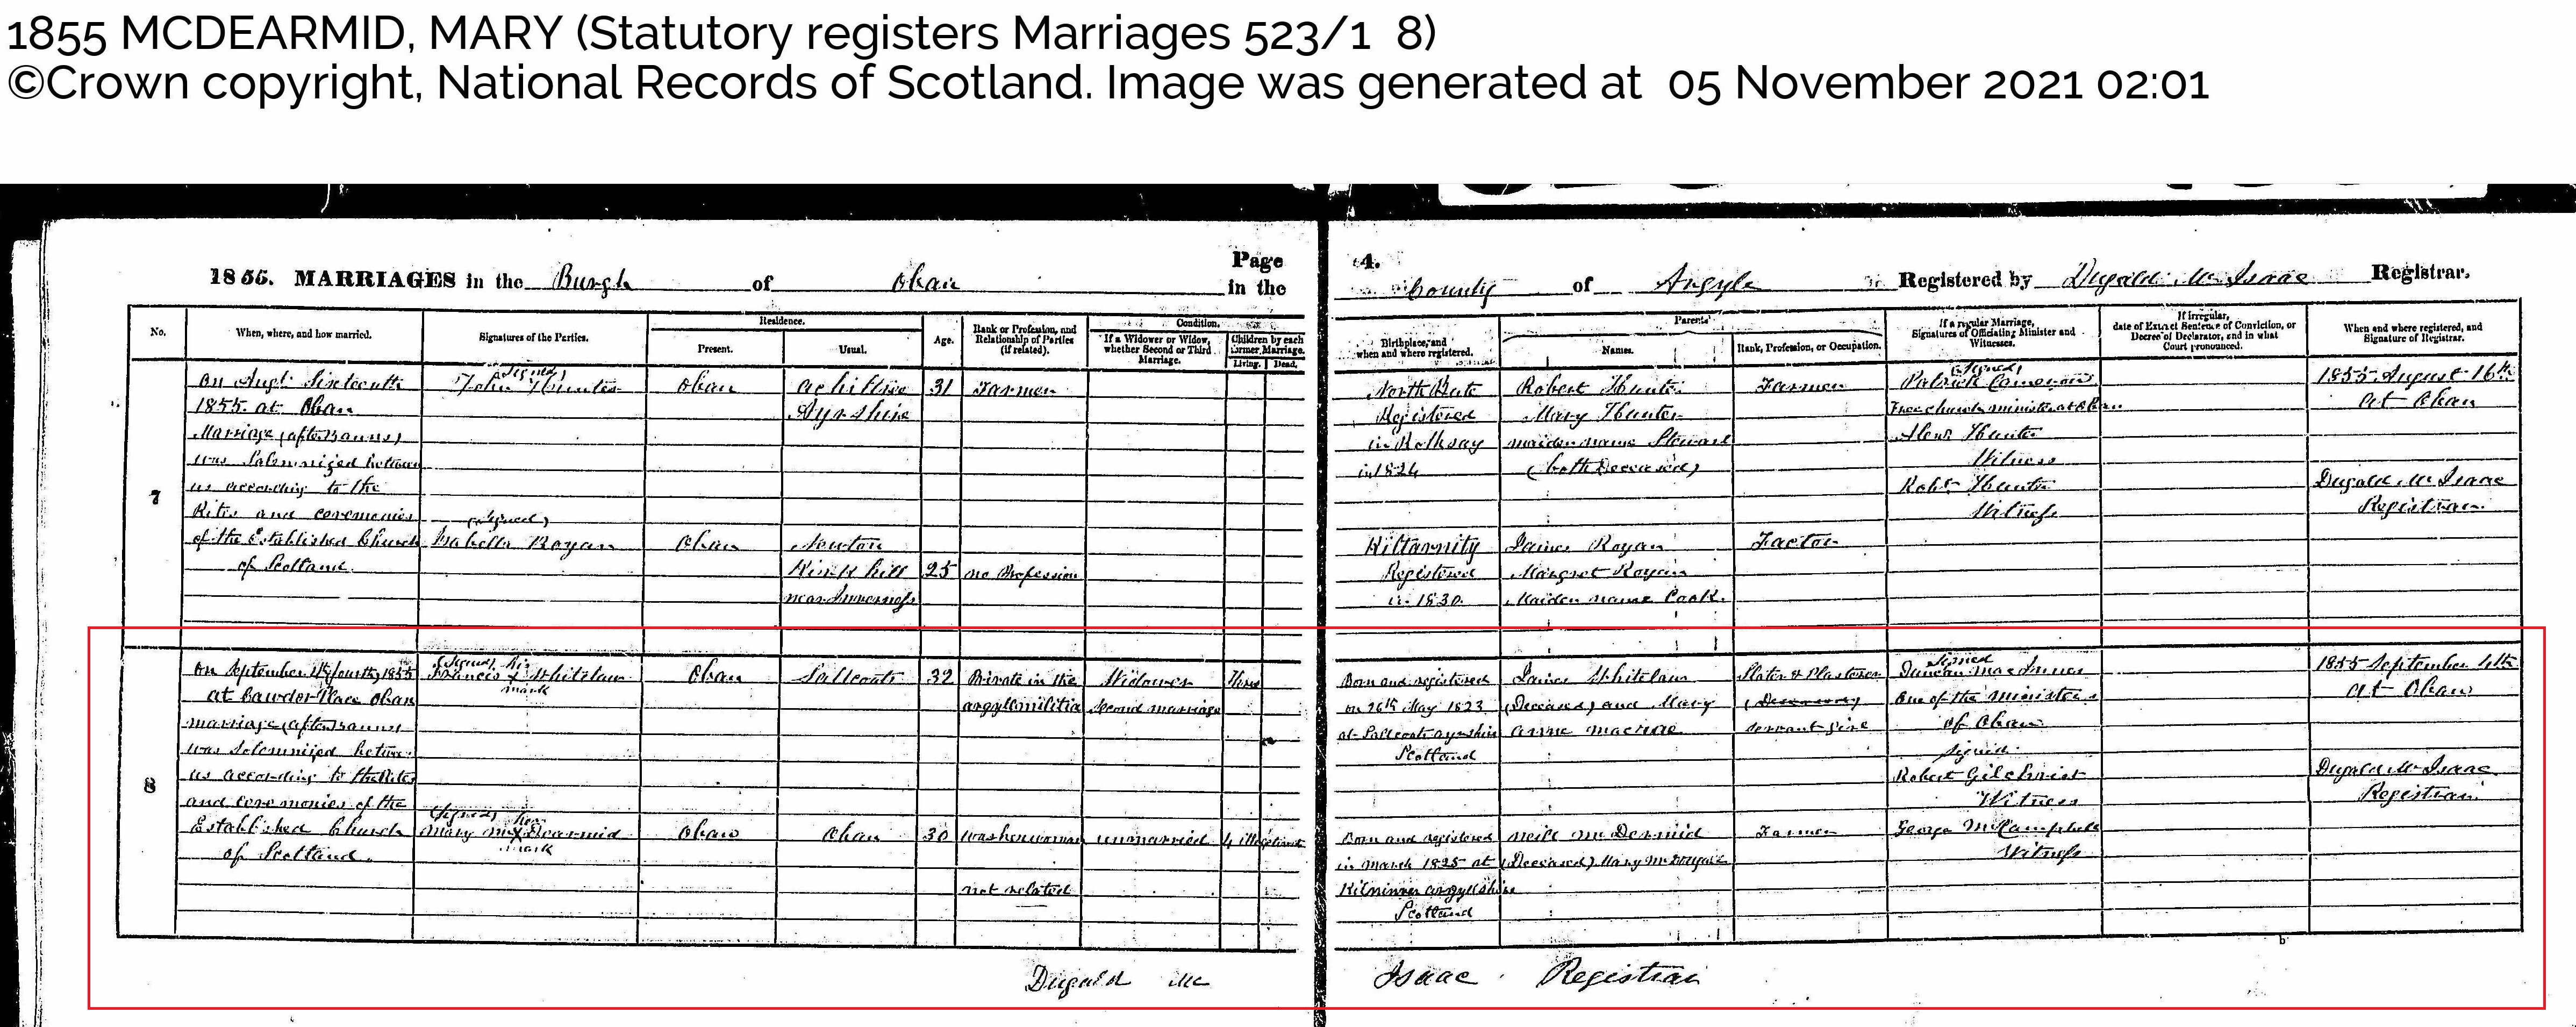 1855 MCDEARMID, MARY (Statutory registers Marriages 523/1 8)
©Crown copyright, National Records of Scotland. Image was generated at 05 November 2021 02:01
1855. MARRIAGES in the Burgh of Oban Page in the
4.
County of Argyle Registered by Dugald McIsaac Registrar.
No.
When, where, and how married.
Signatures of the Parties.
Residence.
Present.
Usual.
Age.
Rank or Profession, and
Relationship of Parties
(if related).
Condition.
If a Widower or Widow,
whether Second or Third
Marriage.
Children by each
former Marriage.
Living. Dead.
Birthplace, and
when and where registered.
Parents'
Names.
Rank, Profession, or Occupation.
If a regular Marriage,
Signatures of Officiating Minister and
Witnesses.
If irregular,
date of Extract Sentence of Conviction, or
Decree of Declarator, and in what
Court pronounced.
When and where registered, and
Signature of Registrar.
7
on Augt. Sixteenth
1855 at Oban
Marriage (after Banns)
was Solemnized between
us according to the
Rites and ceremonies
of the Established Church
of Scotland.
(Signed)
John Hunter
Oban
Ayrshire
31
Farmer
(Signed)
Isabella Royan
Oban
Newton
Kirkhill
near Inverness
25
no Profession
North Bute
Registered
in Rothsay
in 1824
Robert Hunter
Mary Hunter
maiden name Stewart
(both Deceased)
Farmer
Kiltarnity
Registered
in 1830.
James Royan
Margret Royan
Maiden name Cook.
Factor
(Signed)
Patrick Cameron
Free church minister at Oban
Hunter
Witness
Robt. Hunter
Witness
1855 August 16th
at Oban
Dugald McIsaac
Registrar.
8
on September 4th (fourth) 1855
at Cawdor Place Oban
marriage (after Banns)
was solemnized between
us according to the Rites
and ceremonies of the
Established Church
of Scotland.
(Signed) his
Francis X Whitelaw
mark
Oban
Saltcoats
32
Private in the
argyllmilitia
Widower
Second marriage
Three
(Signed) her
Mary McX Dearmid
mark
Oban
Oban
30
washerwoman
not related
unmarried
4 illegitimate
Born and registered
on 26th May 1823
at Saltcoats ayrshire
Scotland
James Whitelaw
(Deceased) and Mary
anne macrae
Slater & Plasterer
(Deceased)
servant
Born and registered
in March 1825 at
Kilninver argyllshire
Scotland
neill mcDermid
(Deceased) Mary McDougall
Farmer
Signed
Duncan MacInnes
One of the ministers
of Oban
signed
Robert Gilchrist
Witness
George McCampbell
Witness
1855 September 4th
at Oban
Dugald McIsaac
Registrar.
Dugald Mc Isaac Registrar